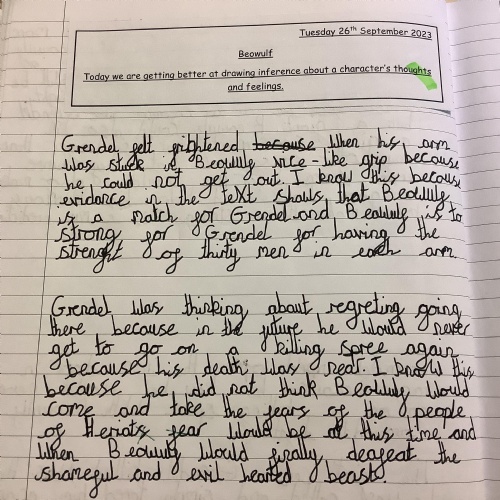 Tuesday 26th September 2023
Beowulf
Today we are getting better at drawing inference about a character's thoughts
and feelings.
Grendel felt frightened because When his arm
was stuck in Beowulfs vice-like grip because
he could not get out. I know this because
evidance in the teXt shows that Beowulf
is a match for Grendel and Beowulf is to
strong for Grendel for having the
strenght of thirty men in each arm.
Grendel Was thinking about regreting going
there because in the future he Would never
get to go on a killing spree again
because his death Was near. I know this
because he did not think Beowulf Would
come and take the fears of the people
of Heriots fear Would be at this time and
When Beowulf Would finally deafeat the
shameful and evil hearted beast.